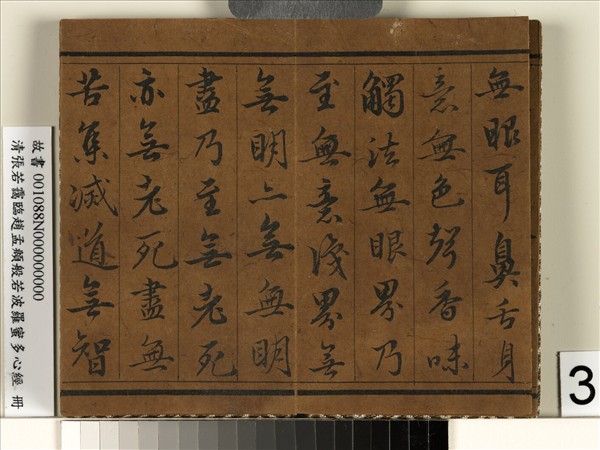 無眼耳鼻舌身
意無色聲香味
觸法無眼界乃
至無意識界無
無明亦無無明
盡乃至無老死
亦無老死盡無
苦集滅道無智
故書 001088N000000000
清張若靄臨趙孟頫般若波羅蜜多心經 冊
3